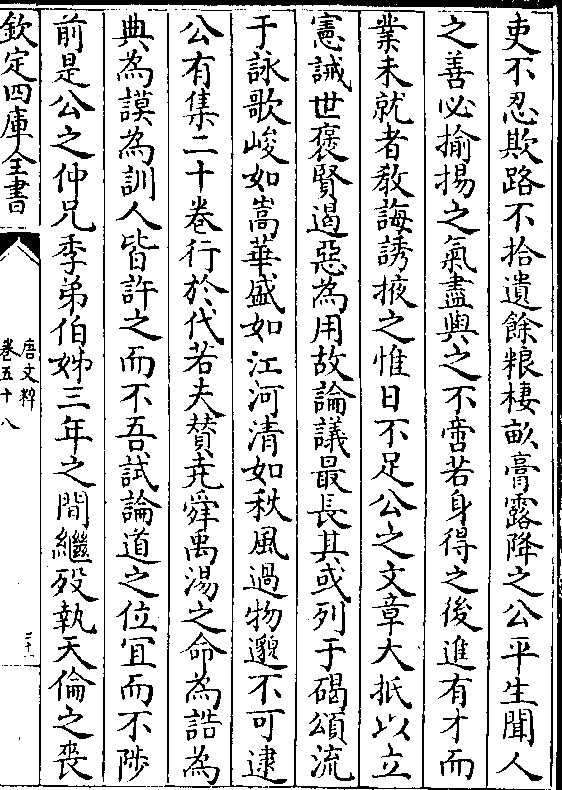 吏不忍欺路不拾遺餘粮棲畝膏露降之公平生聞人
之善必揄揚之氣盡與之不啻若身得之後進有才而
業未就者教誨誘掖之惟日不足公之文章大抵以立
憲誡世褒賢遏惡為用故論議最長其或列于碣頌流
于詠歌峻如嵩華盛如江河清如秋風過物邈不可逮
公有集二十卷行於代若夫賛堯舜禹湯之命為誥為
典為謨為訓人皆許之而不吾試論道之位宜而不陟
前是公之仲兄季弟伯姊三年之間繼殁執天倫之喪
欽定四庫全書
唐文粹
卷五十八
三十一